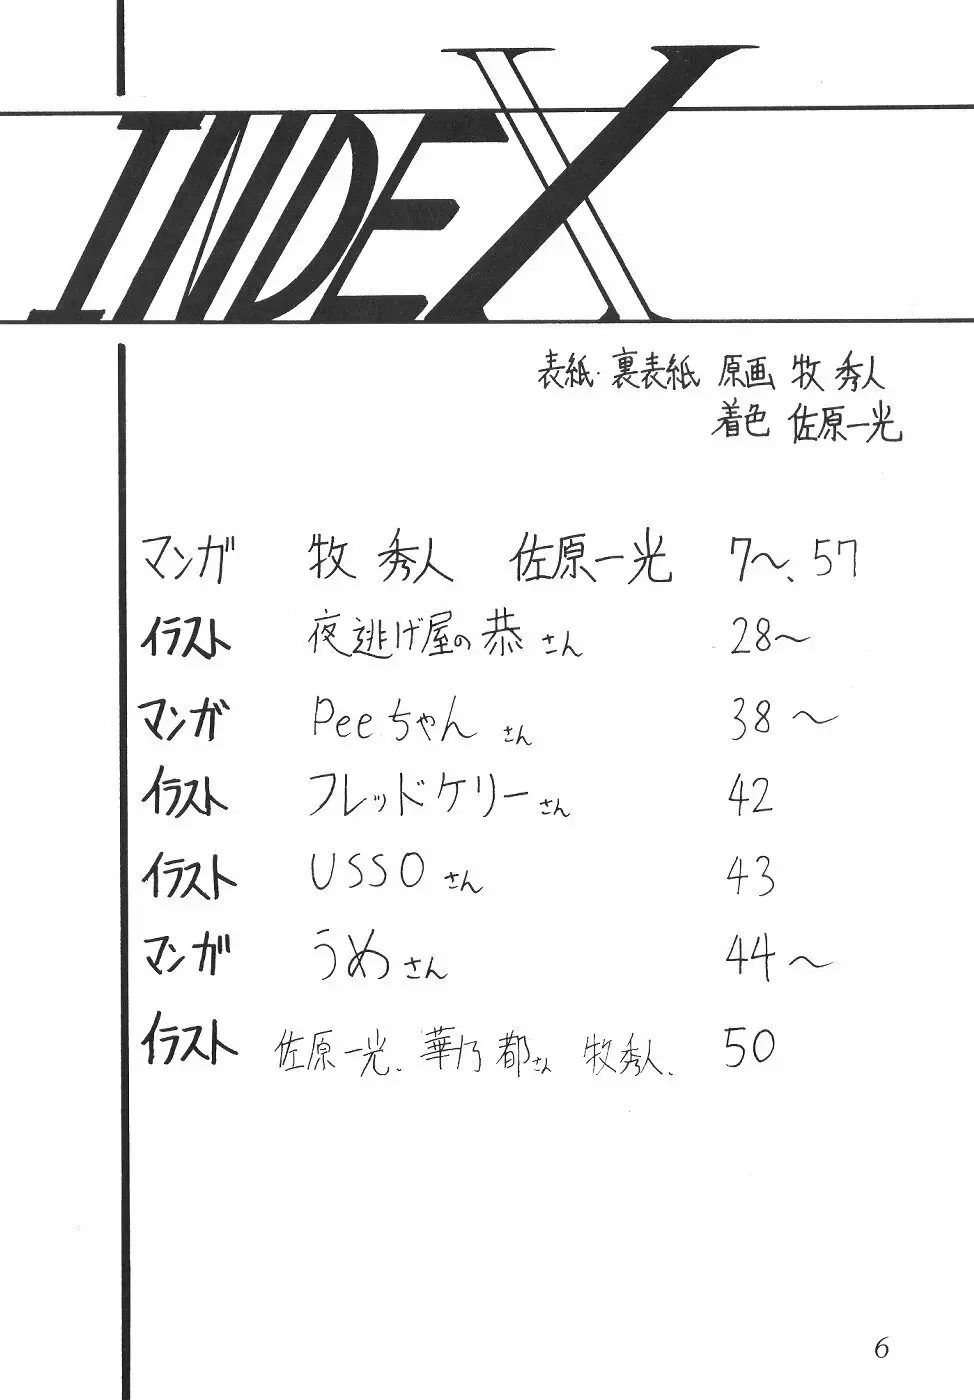 INDEX
表紙・裏表紙 原画 牧 秀人
着色 佐原一光
マンガ 牧 秀人 佐原一光 7〜、57
イラスト 夜逃げ屋の恭さん 28〜
マンガ Peeちゃん さん 38〜
イラスト フレッドケリーさん 42
イラスト USSOさん 43
マンガ うめさん 44〜
イラスト 佐原一光、華乃都さん 牧秀人、 50
6